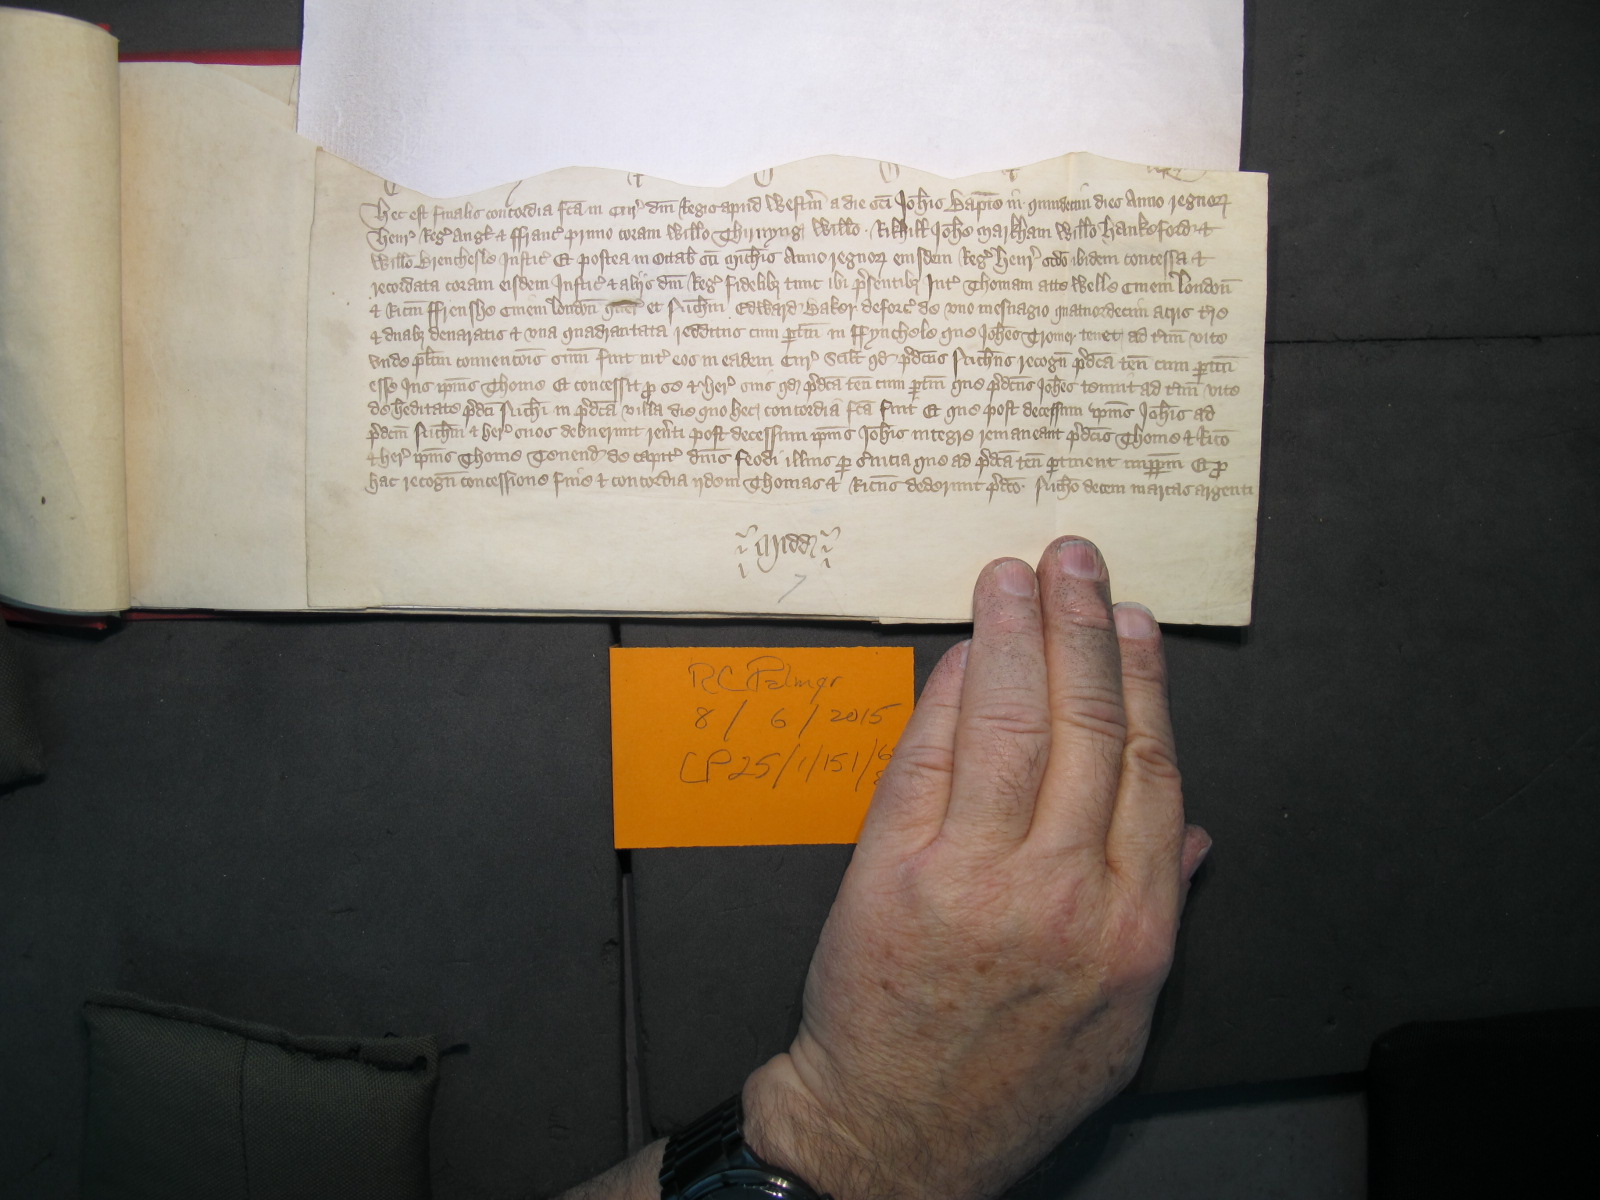 Hec est finalis concordia fca in Cur' dni Regis apud Westm' a die sci Johis Bapte in quindecim dies Anno regnor
Henr' Reg' Angl' & Franc' primo coram Willo Thirnyng Willo Rikhill Johe Markham Willo Hankeford &
Willo Brenchesle Justic' Et postea in Octab' sci Michis Anno regnor eiusdem Reg' Henr' scdo ibidem concessa &
recordata coram eisdem Justic' & alijs dni Reg' fidelibz tunc ibi p'sentibz Int' Thomam atte Welle Civem London
& Ricm Frensshe Civem London quer' et Edward Baker deforc' de uno mesuagio quatuordecim acris t're
& duabz denaratis & una quadrantata redditus cum ptin in Fynchele que Johes Tromer tenet ad t'm vite
unde plitm convencois sum fuit int' eos in eadem Cur' Scilt qd p'dcus recogn p'dca ten cum ptin
esse Jus ipius Thome Et concessit p se & her' suis qd p'dca ten cum ptin que p'dcus Johes tenuit ad t'm vite
de heditate p'dci in p'dca villa die quo hec concordia fca fuit Et que post decessum ipius Johis ad
p'dcm & her' suos debuerunt rev'ti post decessum ipius Johis integre remaneant p'dcis Thome & Rico
& her' ipius Thome Tenend de capit' dnis feodi illius p s'vicia que ad p'dca ten ptinent imppm Et p
hac recogn concessione fine & concordia ijdem Thomas & Ricus dederunt p'dco decem marcas argenti
Midd
R C Palmer
8 / 6 / 2015
CP 25/1/151/